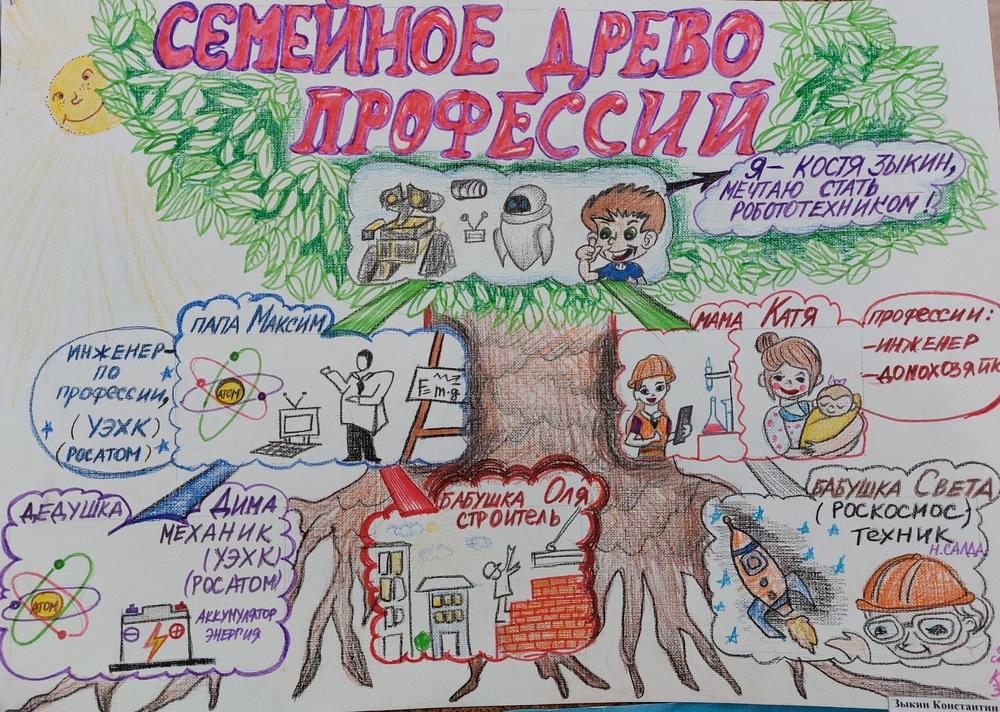 СЕМЕЙНОЕ ДРЕВО
ПРОФЕССИЙ
Я - КОСТЯ ЗЫКИН,
МЕЧТАЮ СТАТЬ
РОБОТОТЕХНИКОМ!
ПАПА МАКСИМ
ИНЖЕНЕР-
ПО
ПРОФЕССИИ,
(УЭХК)
(РОСАТОМ)
АТОМ
E=m·g
МАМА КАТЯ
ПРОФЕССИИ:
-ИНЖЕНЕР
-ДОМОХОЗЯЙК
ДЕДУШКА ДИМА
МЕХАНИК
(УЭХК)
(РОСАТОМ)
АККУМУЛЯТОР
ЭНЕРГИЯ
АТОМ
БАБУШКА ОЛЯ
СТРОИТЕЛЬ
БАБУШКА СВЕТА
(РОСКОСМОС)
ТЕХНИК
Н.САЛДА
Зыкин Константин